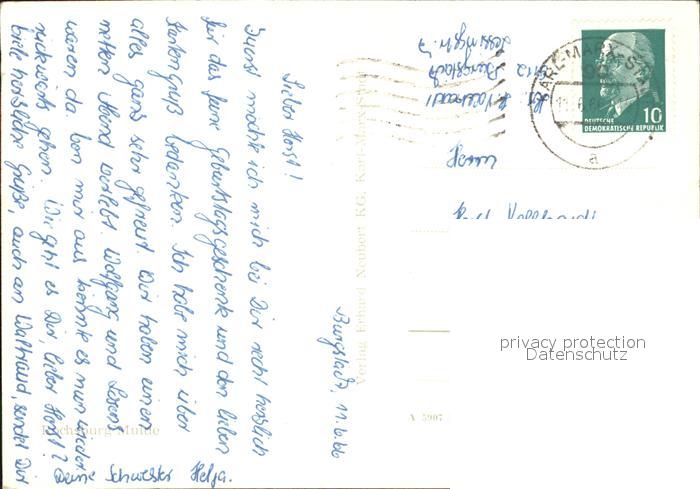 Burgstädt, 11.6.66
Lieber Horst!
Zuerst möchte ich mich bei Dir recht herzlich
für das feine Geburtstagsgeschenk und den lieben
Kartengruß bedanken. Ich habe mich über
alles ganz sehr gefreut. Wir haben einen
netten Abend verlebt. Wolfgang und
waren da. Von mir aus könnte es nun wieder
rückwärts gehen. Wie geht es Dir, lieber Horst?
Viele herzliche Grüße, auch an Waltraud, sendet Dir
Deine Schwester Helga.
Rochsburg Mulde
Verlag Erhard Neubert KG, Karl-Marx-Stadt
A 5907
Burgstädt
Lessingstr. 7
KARL-MARX-STADT
a
10
DEUTSCHE
DEMOKRATISCHE REPUBLIK
privacy protection
Datenschutz